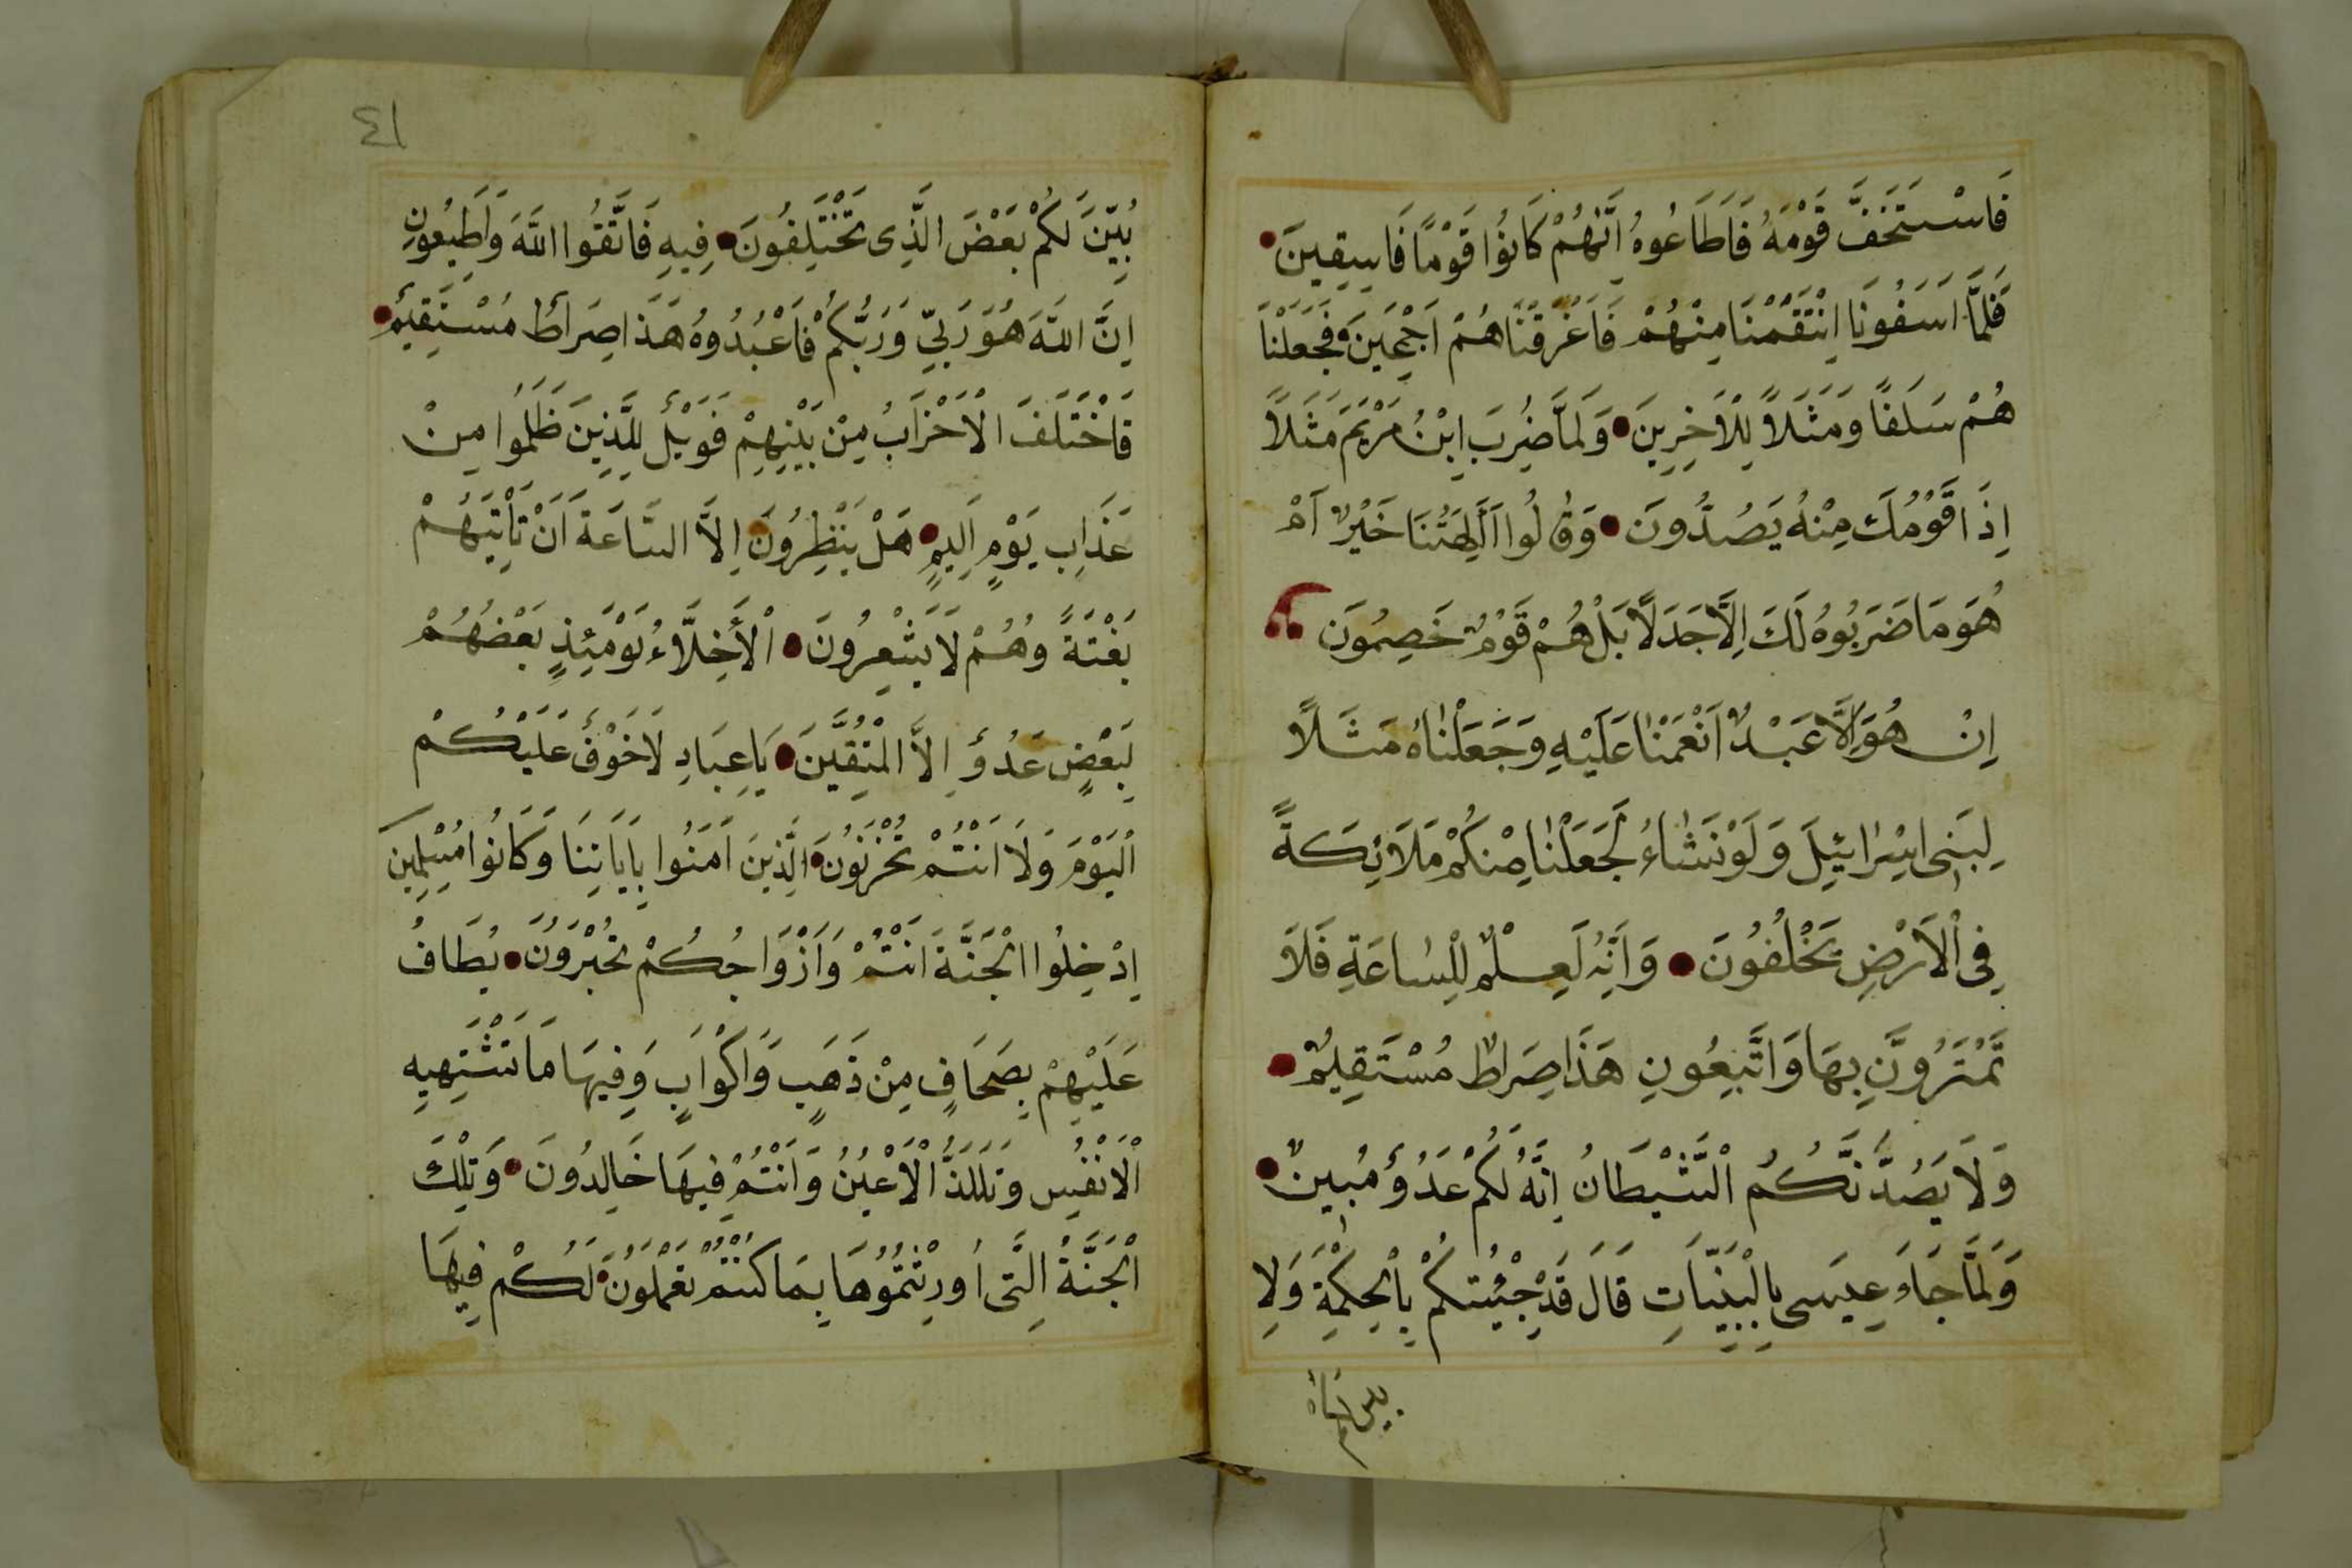 فَاسْتَخَفَّ قَوْمَهُ فَاَطَاعُوهُ اِنَّهُمْ كَانُوا قَوْمًا فَاسِقِينَ
فَلَمَّا اَسَفُونَا اِنْتَقَمْنَا مِنْهُمْ فَاَغْرَقْنَاهُمْ اَجْمَعِينَ فَجَعَلْنَا
هُمْ سَلَفًا وَمَثَلاً لِلْاَخِرِينَ وَلَمَّا ضُرِبَ اِبْنُ مَرْيَمَ مَثَلاً
اِذَا قَوْمُكَ مِنْهُ يَصُدُّونَ وَقَالُوا اَاَلِهَتُنَا خَيْرٌ اَمْ
هُوَ مَا ضَرَبُوهُ لَكَ اِلَّا جَدَلاً بَلْ هُمْ قَوْمٌ خَصِمُونَ
اِنْ هُوَ اِلَّا عَبْدٌ اَنْعَمْنَا عَلَيْهِ وَجَعَلْنَاهُ مَثَلاً
لِبَنِى اِسْرَائِيلَ وَلَوْ نَشَاءُ لَجَعَلْنَا مِنْكُمْ مَلَائِكَةً
فِى الْاَرْضِ يَخْلُفُونَ وَاَنَّهُ لَعِلْمٌ لِلسَّاعَةِ فَلاَ
تَمْتَرُوَنَّ بِهَا وَاتَّبِعُونِ هَذَا صِرَاطٌ مُسْتَقِيمٌ
وَلَا يَصُدَّنَّكُمُ الشَّيْطَانُ اِنَّهُ لَكُمْ عَدُوٌّ مُبِينٌ
وَلَمَّا جَاءَ عِيسَى بِالْبَيِّنَاتِ قَالَ قَدْ جِئْتُكُمْ بِالْحِكْمَةِ وَلِاُ
٤١
بَيِّنَ لَكُمْ بَعْضَ الَّذِى تَخْتَلِفُونَ فِيهِ فَاتَّقُوا اللَّهَ وَاَطِيعُونِ
اِنَّ اللَّهَ هُوَ رَبِّي وَرَبُّكُمْ فَاعْبُدُوهُ هَذَا صِرَاطٌ مُسْتَقِيمٌ
فَاخْتَلَفَ الْاَحْزَابُ مِنْ بَيْنِهِمْ فَوَيْلٌ لِلَّذِينَ ظَلَمُوا مِنْ
عَذَابِ يَوْمٍ اَلِيمٍ هَلْ يَنْظُرُونَ اِلاَّ السَّاعَةَ اَنْ تَاْتِيَهُمْ
بَغْتَةً وَهُمْ لَا يَشْعُرُونَ اَلْأَخِلَّاءُ يَوْمَئِذٍ بَعْضُهُمْ
لِبَعْضٍ عَدُوٌّ اِلاَّ الْمُتَّقِينَ يَا عِبَادِ لَا خَوْفٌ عَلَيْكُمْ
الْيَوْمَ وَلَا اَنْتُمْ تَحْزَنُونَ الَّذِينَ اَمَنُوا بِاَيَاتِنَا وَكَانُوا مُسْلِمِينَ
اِدْخُلُوا الْجَنَّةَ اَنْتُمْ وَاَزْوَاجُكُمْ تُحْبَرُونَ يُطَافُ
عَلَيْهِمْ بِصَحَافٍ مِنْ ذَهَبٍ وَاَكْوَابٍ وَفِيهَا مَا تَشْتَهِيهِ
الْاَنْفُسِ وَتَلَذُّ الْاَعْيُنُ وَاَنْتُمْ فِيهَا خَالِدُونَ وَتِلْكَ
الْجَنَّةُ الَّتِى اُورِثْتُمُوهَا بِمَا كُنْتُمْ تَعْمَلُونَ لَكُمْ فِيهَا